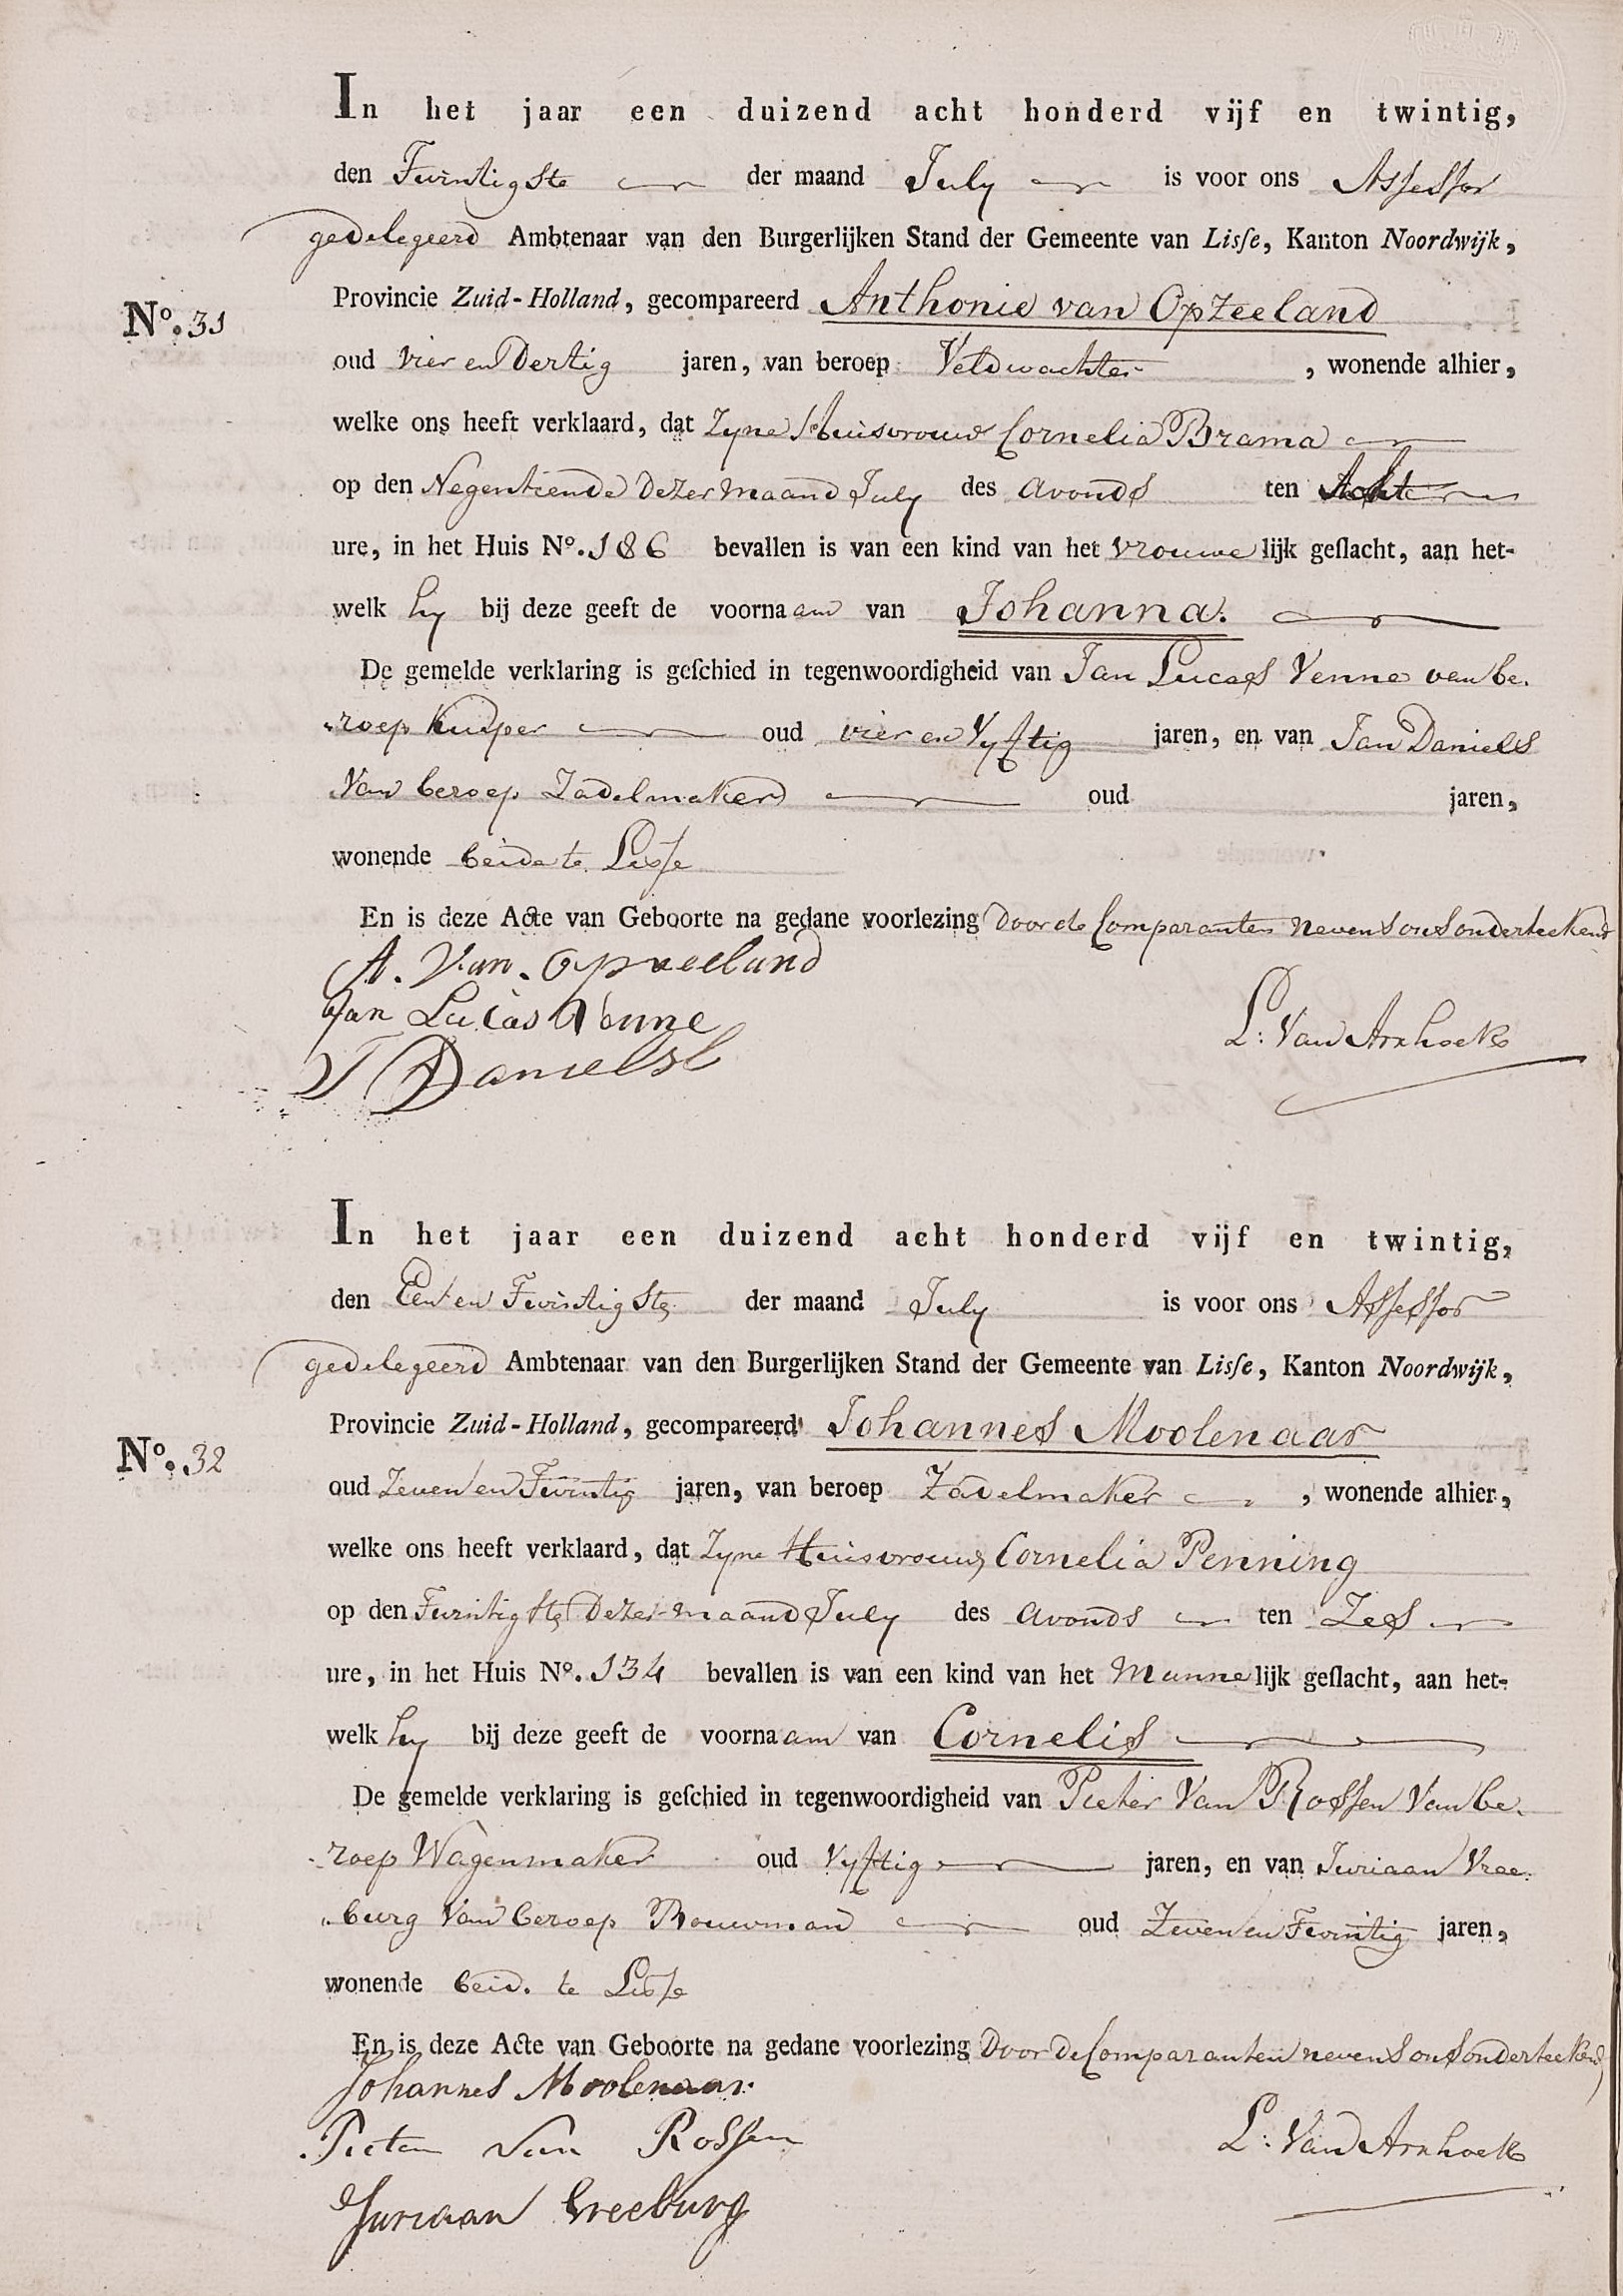 In het jaar een duizend acht honderd vijf en twintig,
den Twintigste der maand July is voor ons Assessor
gedelegeerd Ambtenaar van den Burgerlijken Stand der Gemeente van Lisſe, Kanton Noordwijk,
Provincie Zuid-Holland, gecompareerd Anthonie van Opzeeland
No. 31
oud vier en Dertig jaren, van beroep Veldwachter, wonende alhier,
welke ons heeft verklaard, dat Zyne Huisvrouw Cornelia Brama
op den Negentiende dezer maand July des avonds ten Acht
ure, in het Huis No. 186 bevallen is van een kind van het vrouwelijk geſlacht, aan het-
welk hy bij deze geeft de voornaam van Johanna.
De gemelde verklaring is geſchied in tegenwoordigheid van Jan Lucas Venne van be-
roep Kuiper oud vier en Vyftig jaren, en van Jan Daniels
Van beroep Zadelmaker oud jaren,
wonende beide te Lisse
En is deze Acte van Geboorte na gedane voorlezing door de Comparanten nevens ons onderteekend
A. Van. Opzeeland
Jan Lucas Venne
L: Van Arxhoek
J Daniels
In het jaar een duizend acht honderd vijf en twintig,
den Een en Twintigste der maand July is voor ons Assessor
gedelegeerd Ambtenaar van den Burgerlijken Stand der Gemeente van Lisſe, Kanton Noordwijk,
Provincie Zuid-Holland, gecompareerd Johannes Moolenaar
No. 32
oud Zeven en Twintig jaren, van beroep Zadelmaker, wonende alhier,
welke ons heeft verklaard, dat Zyne Huisvrouw Cornelia Penning
op den Twintigste Dezer maand July des avonds ten Zes
ure, in het Huis No. 134 bevallen is van een kind van het Mannelijk geſlacht, aan het-
welk hy bij deze geeft de voornaam van Cornelis
De gemelde verklaring is geſchied in tegenwoordigheid van Pieter Van Rossen Van be-
roep Wagenmaker oud Vyftig jaren, en van Juriaan Vree-
burg Van beroep Bouwman oud Zeven en Twintig jaren,
wonende beid. te Lisse
En is deze Acte van Geboorte na gedane voorlezing Door De Comparanten nevens ons onderteekend
Johannes Moolenaar
Pieter Van Rossen
L: Van Arxhoek
Juriaan Vreeburg